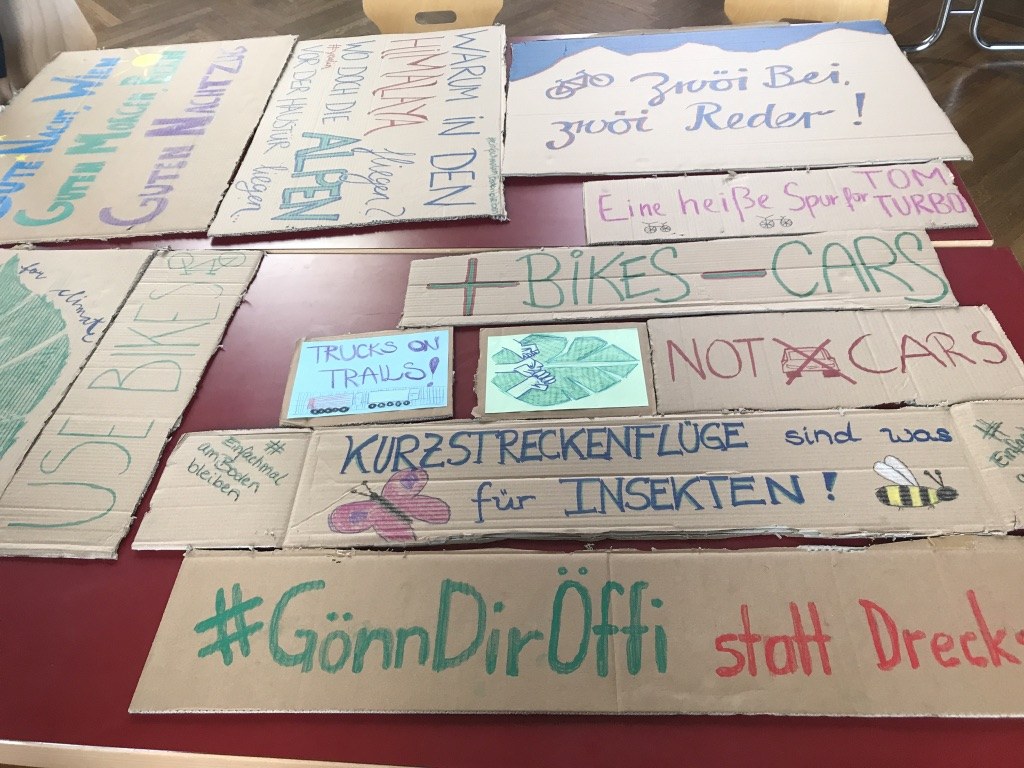 GUTE NACHT, WIEN
GUTEN MORGEN, BERLIN
GUTEN NACHTZUG
WARUM IN DEN
HIMALAYA fliegen?
WO DOCH DIE ALPEN
VOR DER HAUSTÜR liegen.
Zwöi Bei,
zwöi Reder!
Eine heiße Spur für TOM
TURBO
+ BIKES - CARS
for climate
USE BIKES
TRUCKS ON
TRAILS!
NOT CARS
#
Einfachmal
am Boden
bleiben
KURZSTRECKENFLÜGE sind was
für INSEKTEN!
#
#GönnDirÖffi statt Drecks